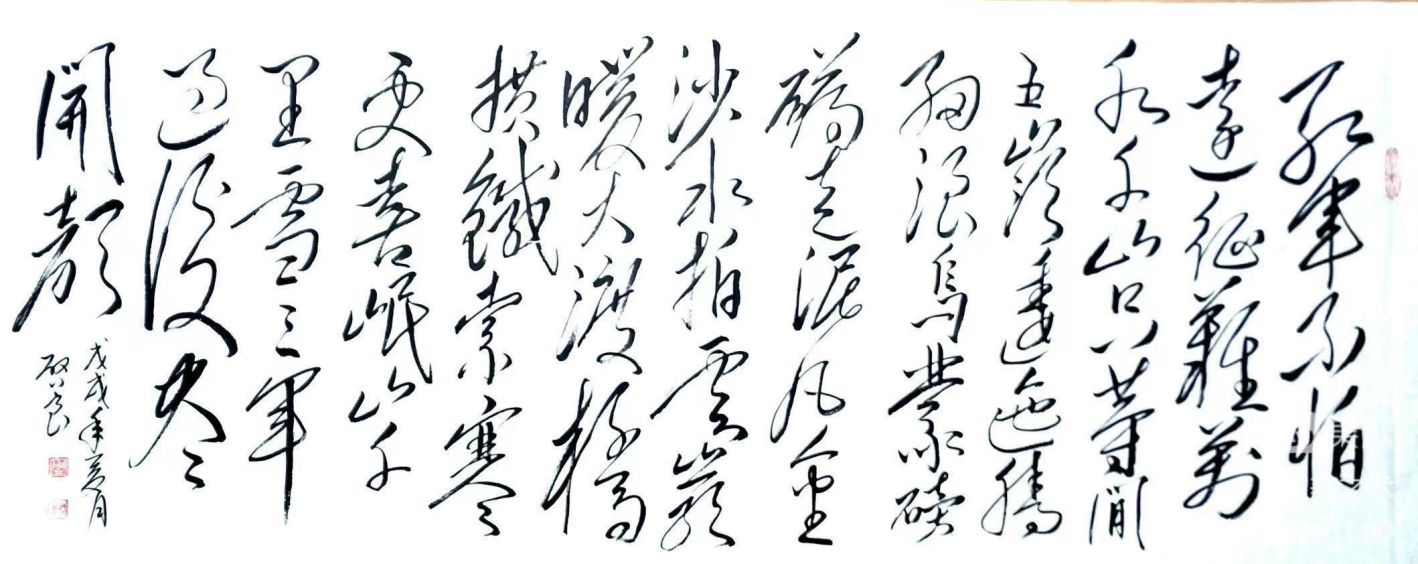 紅軍不怕
遠征難萬
水千山只等閒
五嶺逶迤騰
細浪烏蒙磅
礴走泥丸金
沙水拍雲崖
暖大渡橋
橫鐵索寒
更喜岷山千
里雪三軍
過後盡
開顏
戊戌年亥月